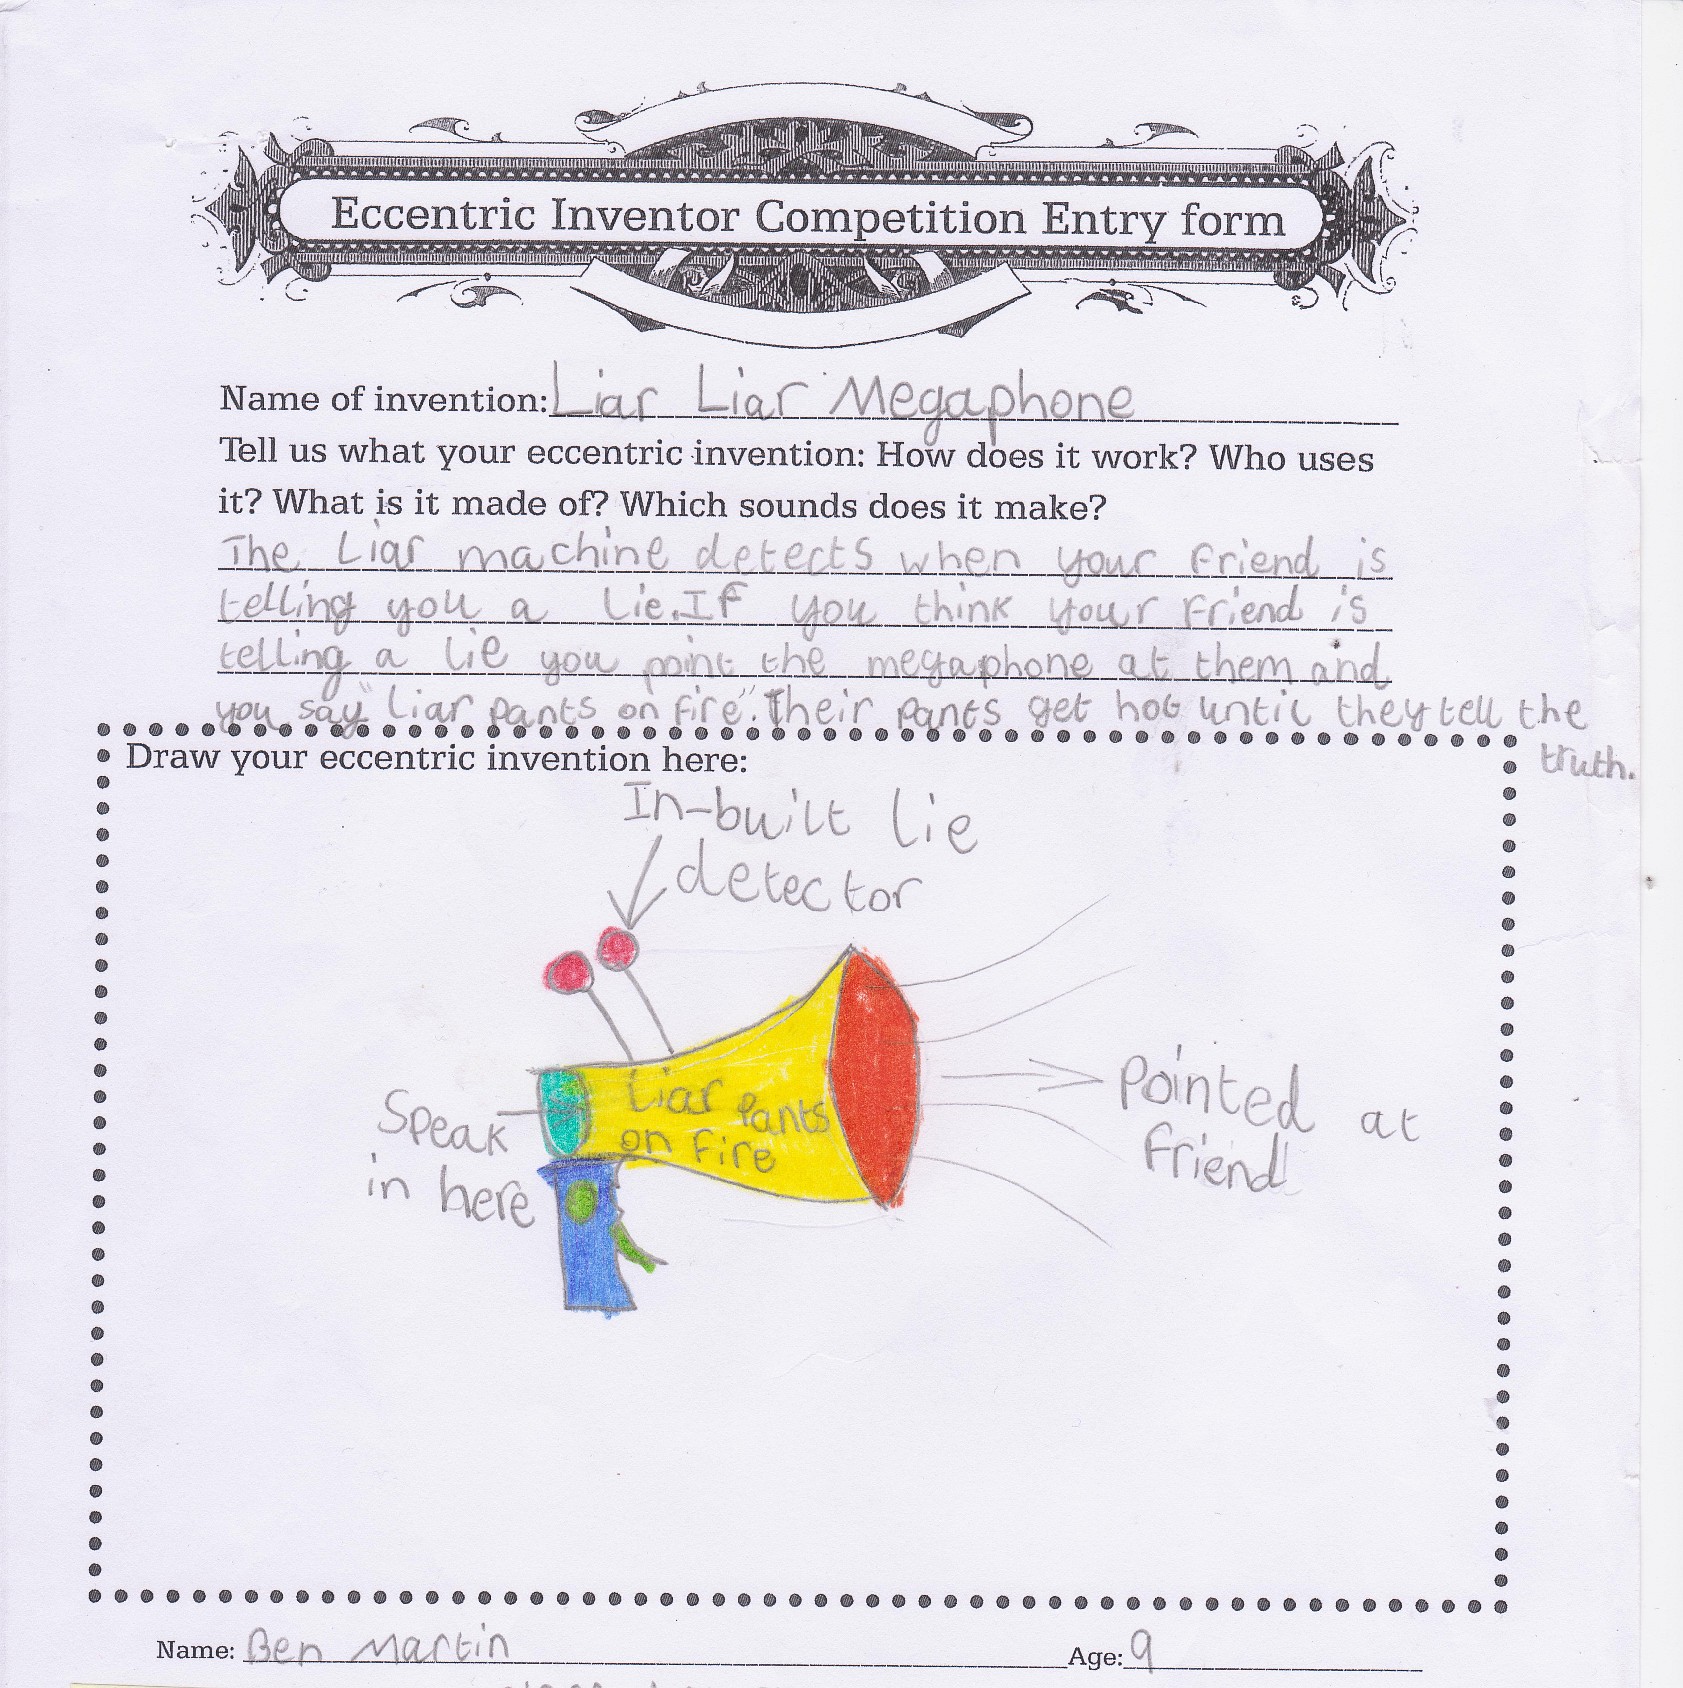 Eccentric Inventor Competition Entry form
Name of invention: Liar Liar Megaphone
Tell us what your eccentric invention: How does it work? Who uses
it? What is it made of? Which sounds does it make?
The Liar machine detects when your friend is
telling you a lie. If you think your friend is
telling a lie you point the megaphone at them and
you say "liar pants on fire". Their pants get hot until they tell the
truth.
Draw your eccentric invention here:
In-built lie
detector
Speak
in here
Liar Pants
on fire
Pointed at
friend
Name: Ben Martin Age: 9